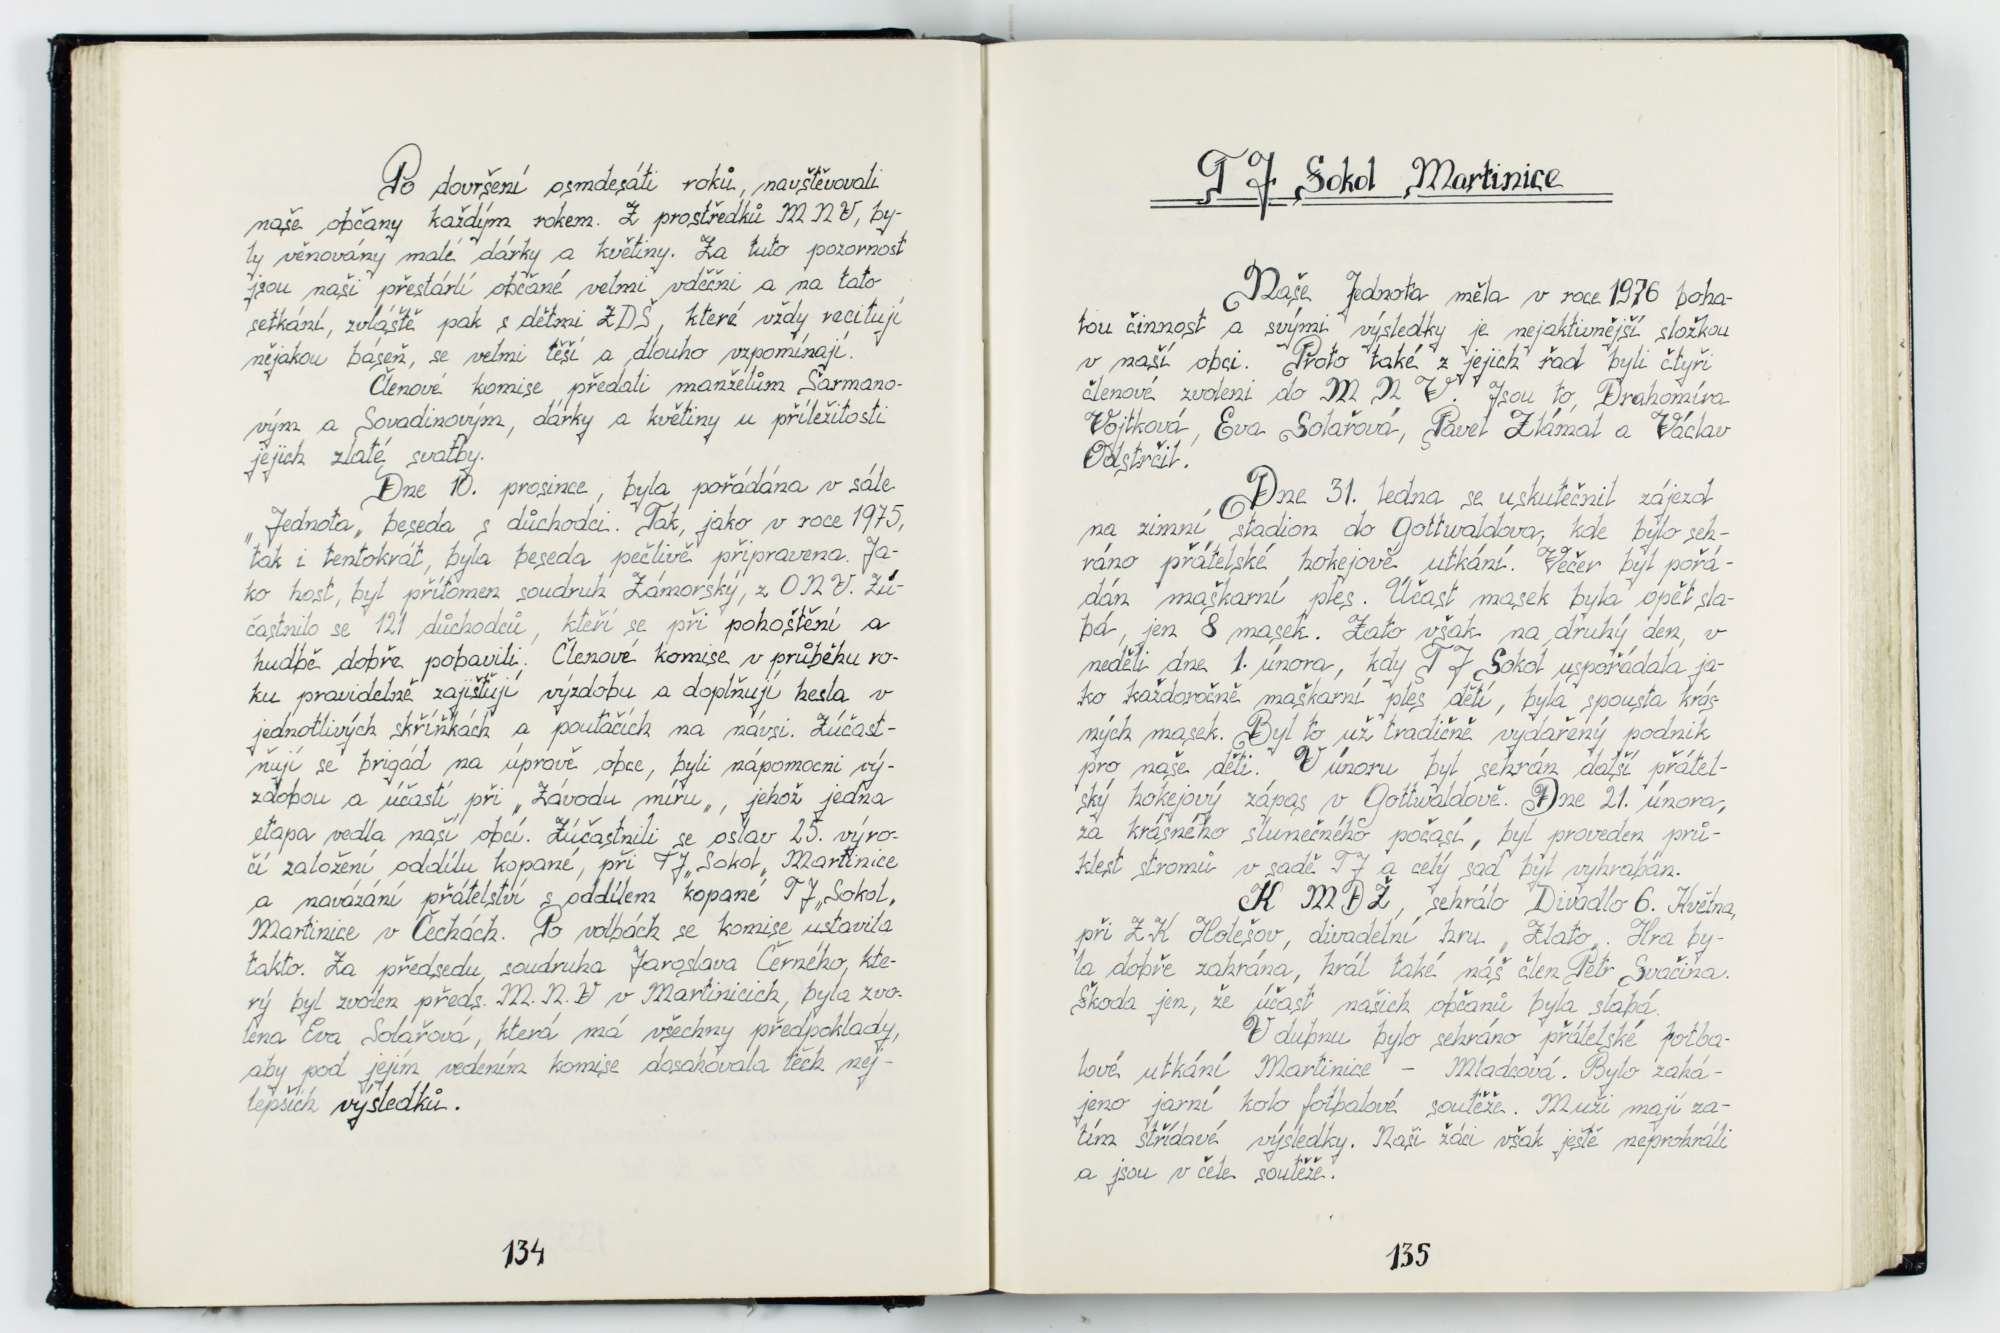 Po dovršení osmdesáti roků, navštěvovali
naše občany každým rokem. Z prostředků MNV, by-
ly věnovány malé dárky a květiny. Za tuto pozornost
jsou naši přestárlí občané velmi vděčni a na tato
setkání, zvláště pak s dětmi ZDŠ, které vždy recitují
nějakou báseň, se velmi těší a dlouho vzpomínají.
Členové komise předali manželům Šarmano-
vým a Sovadinovým, dárky a květiny u příležitosti
jejich zlaté svatby.
Dne 10. prosince, byla pořádána v sále
„Jednota„ beseda s důchodci. Tak, jako v roce 1975,
tak i tentokrát, byla beseda pečlivě připravena. Ja-
ko host, byl přítomen soudruh Zámorský, z ONV. Zú-
častnilo se 121 důchodců, kteří se při pohoštění a
hudbě dobře pobavili. Členové komise v průběhu ro-
ku pravidelně zajišťují výzdobu a doplňují hesla v
jednotlivých skříňkách a poutačích na návsi. Zúčast-
ňují se brigád na úpravě obce, byli nápomocni vý-
zdobou a účastí při „Závodu míru„, jehož jedna
etapa vedla naší obcí. Zúčastnili se oslav 25. výro-
čí založení oddílu kopané, při TJ„Sokol„ Martinice
a navázání přátelství s oddílem kopané TJ„Sokol„
Martinice v Čechách. Po volbách se komise ustavila
takto. Za předsedu soudruha Jaroslava Černého, kte-
rý byl zvolen předs. M.N.V v Martinicích, byla zvo-
lena Eva Solařová, která má všechny předpoklady,
aby pod jejím vedením komise dosahovala těch nej-
lepších výsledků.
134
TJ Sokol Martinice
Naše Jednota měla v roce 1976 boha-
tou činnost a svými výsledky je nejaktivnější složkou
v naší obci. Proto také z jejich řad byli čtyři
členové zvoleni do MNV. Jsou to, Drahomíra
Vojtková, Eva Solařová, Pavel Zlámal a Václav
Odstrčil.
Dne 31. ledna se uskutečnil zájezd
na zimní stadion do Gottwaldova, kde bylo seh-
ráno přátelské hokejově utkání. Večer byl pořá-
dán maškarní ples. Účast masek byla opět sla-
bá, jen 8 masek. Zato však na druhý den, v
neděli dne 1. února, kdy TJ Sokol uspořádala ja-
ko každoročně maškarní ples dětí, byla spousta krás-
ných masek. Byl to už tradičně vydařený podnik
pro naše děti. V únoru byl sehrán další přátel-
ský hokejový zápas v Gottwaldově. Dne 21. února,
za krásného slunečného počasí, byl proveden prů-
klest stromů v sadě TJ a celý sad byl vyhrabán.
K MDŽ, sehrálo Divadlo 6. Května,
při ZK Holešov, divadelní hru „Zlato„. Hra by-
la dobře zahrána, hrál také náš člen Petr Svačina.
Škoda jen, že účast našich občanů byla slabá.
V dubnu bylo sehráno přátelské fotba-
lové utkání Martinice - Mladcová. Bylo zahá-
jeno jarní kolo fotbalové soutěže. Muži mají za-
tím střídavé výsledky. Naši žáci však ještě neprohráli
a jsou v čele soutěže.
135